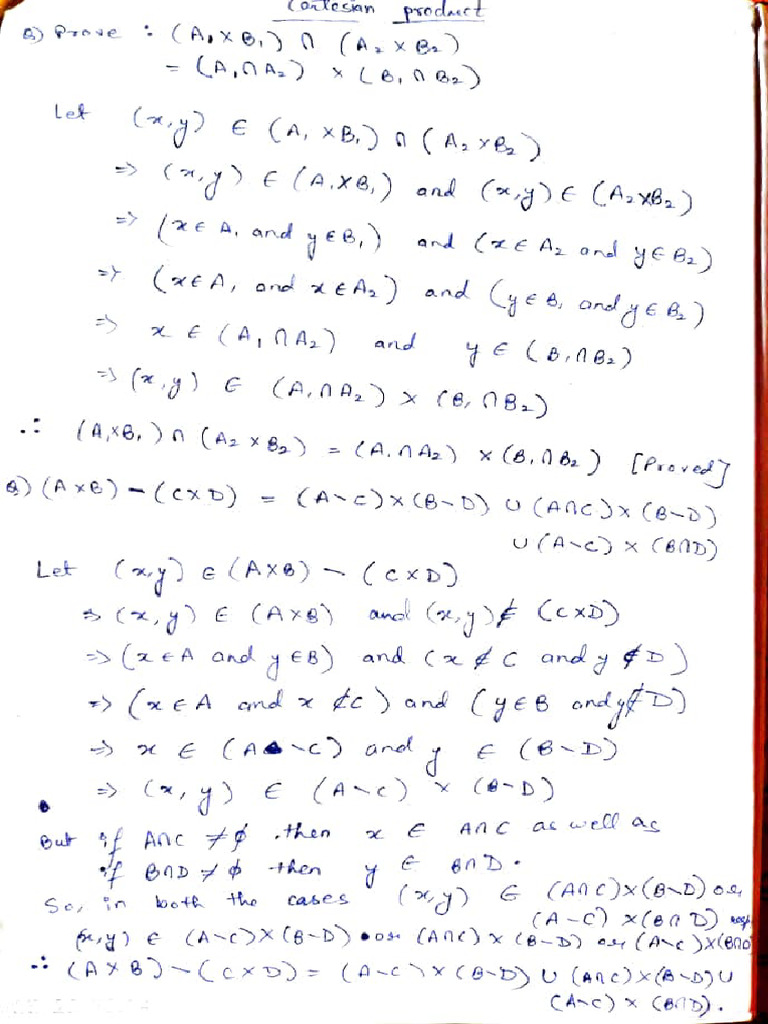 Cartesian product
Q) Prove : (A₁ × B₁) ∩ (A₂ × B₂)
= (A₁ ∩ A₂) × (B₁ ∩ B₂)
Let (x,y) ∈ (A₁ × B₁) ∩ (A₂ × B₂)
⇒ (x,y) ∈ (A₁ × B₁) and (x,y) ∈ (A₂ × B₂)
⇒ (x ∈ A₁ and y ∈ B₁) and (x ∈ A₂ and y ∈ B₂)
⇒ (x ∈ A₁ and x ∈ A₂) and (y ∈ B₁ and y ∈ B₂)
⇒ x ∈ (A₁ ∩ A₂) and y ∈ (B₁ ∩ B₂)
⇒ (x,y) ∈ (A₁ ∩ A₂) × (B₁ ∩ B₂)
∴ (A₁ × B₁) ∩ (A₂ × B₂) = (A₁ ∩ A₂) × (B₁ ∩ B₂) [Proved]
Q) (A × B) − (C × D) = (A − C) × (B − D) ∪ (A ∩ C) × (B − D)
∪ (A − C) × (B ∩ D)
Let (x,y) ∈ (A × B) − (C × D)
⇒ (x,y) ∈ (A × B) and (x,y) ∉ (C × D)
⇒ (x ∈ A and y ∈ B) and (x ∉ C and y ∉ D)
⇒ (x ∈ A and x ∉ C) and (y ∈ B and y ∉ D)
⇒ x ∈ (A − C) and y ∈ (B − D)
⇒ (x,y) ∈ (A − C) × (B − D)
But if A ∩ C ≠ ϕ , then x ∈ A ∩ C as well as
if B ∩ D ≠ ϕ then y ∈ B ∩ D .
So, in both the cases (x,y) ∈ (A ∩ C) × (B − D) or
(A − C) × (B ∩ D)
(x,y) ∈ (A − C) × (B − D) or (A ∩ C) × (B − D) or (A − C) × (B ∩ D)
∴ (A × B) − (C × D) = (A − C) × (B − D) ∪ (A ∩ C) × (B − D) ∪
(A − C) × (B ∩ D).